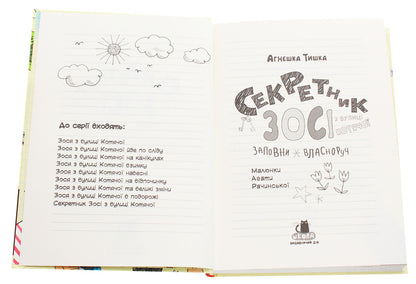 До серії входять:
Зося з вулиці Котячої
Зося з вулиці Котячої йде по сліду
Зося з вулиці Котячої на канікулах
Зося з вулиці Котячої взимку
Зося з вулиці Котячої навесні
Зося з вулиці Котячої на відпочинку
Зося з вулиці Котячої та великі зміни
Зося з вулиці Котячої в подорожі
Секретник Зосі з вулиці Котячої
Агнєшка Тишка
Секретник
Зосі з вулиці
Котячої
Заповни власноруч
Малюнки
Агати
Рачинської
видавничий дім